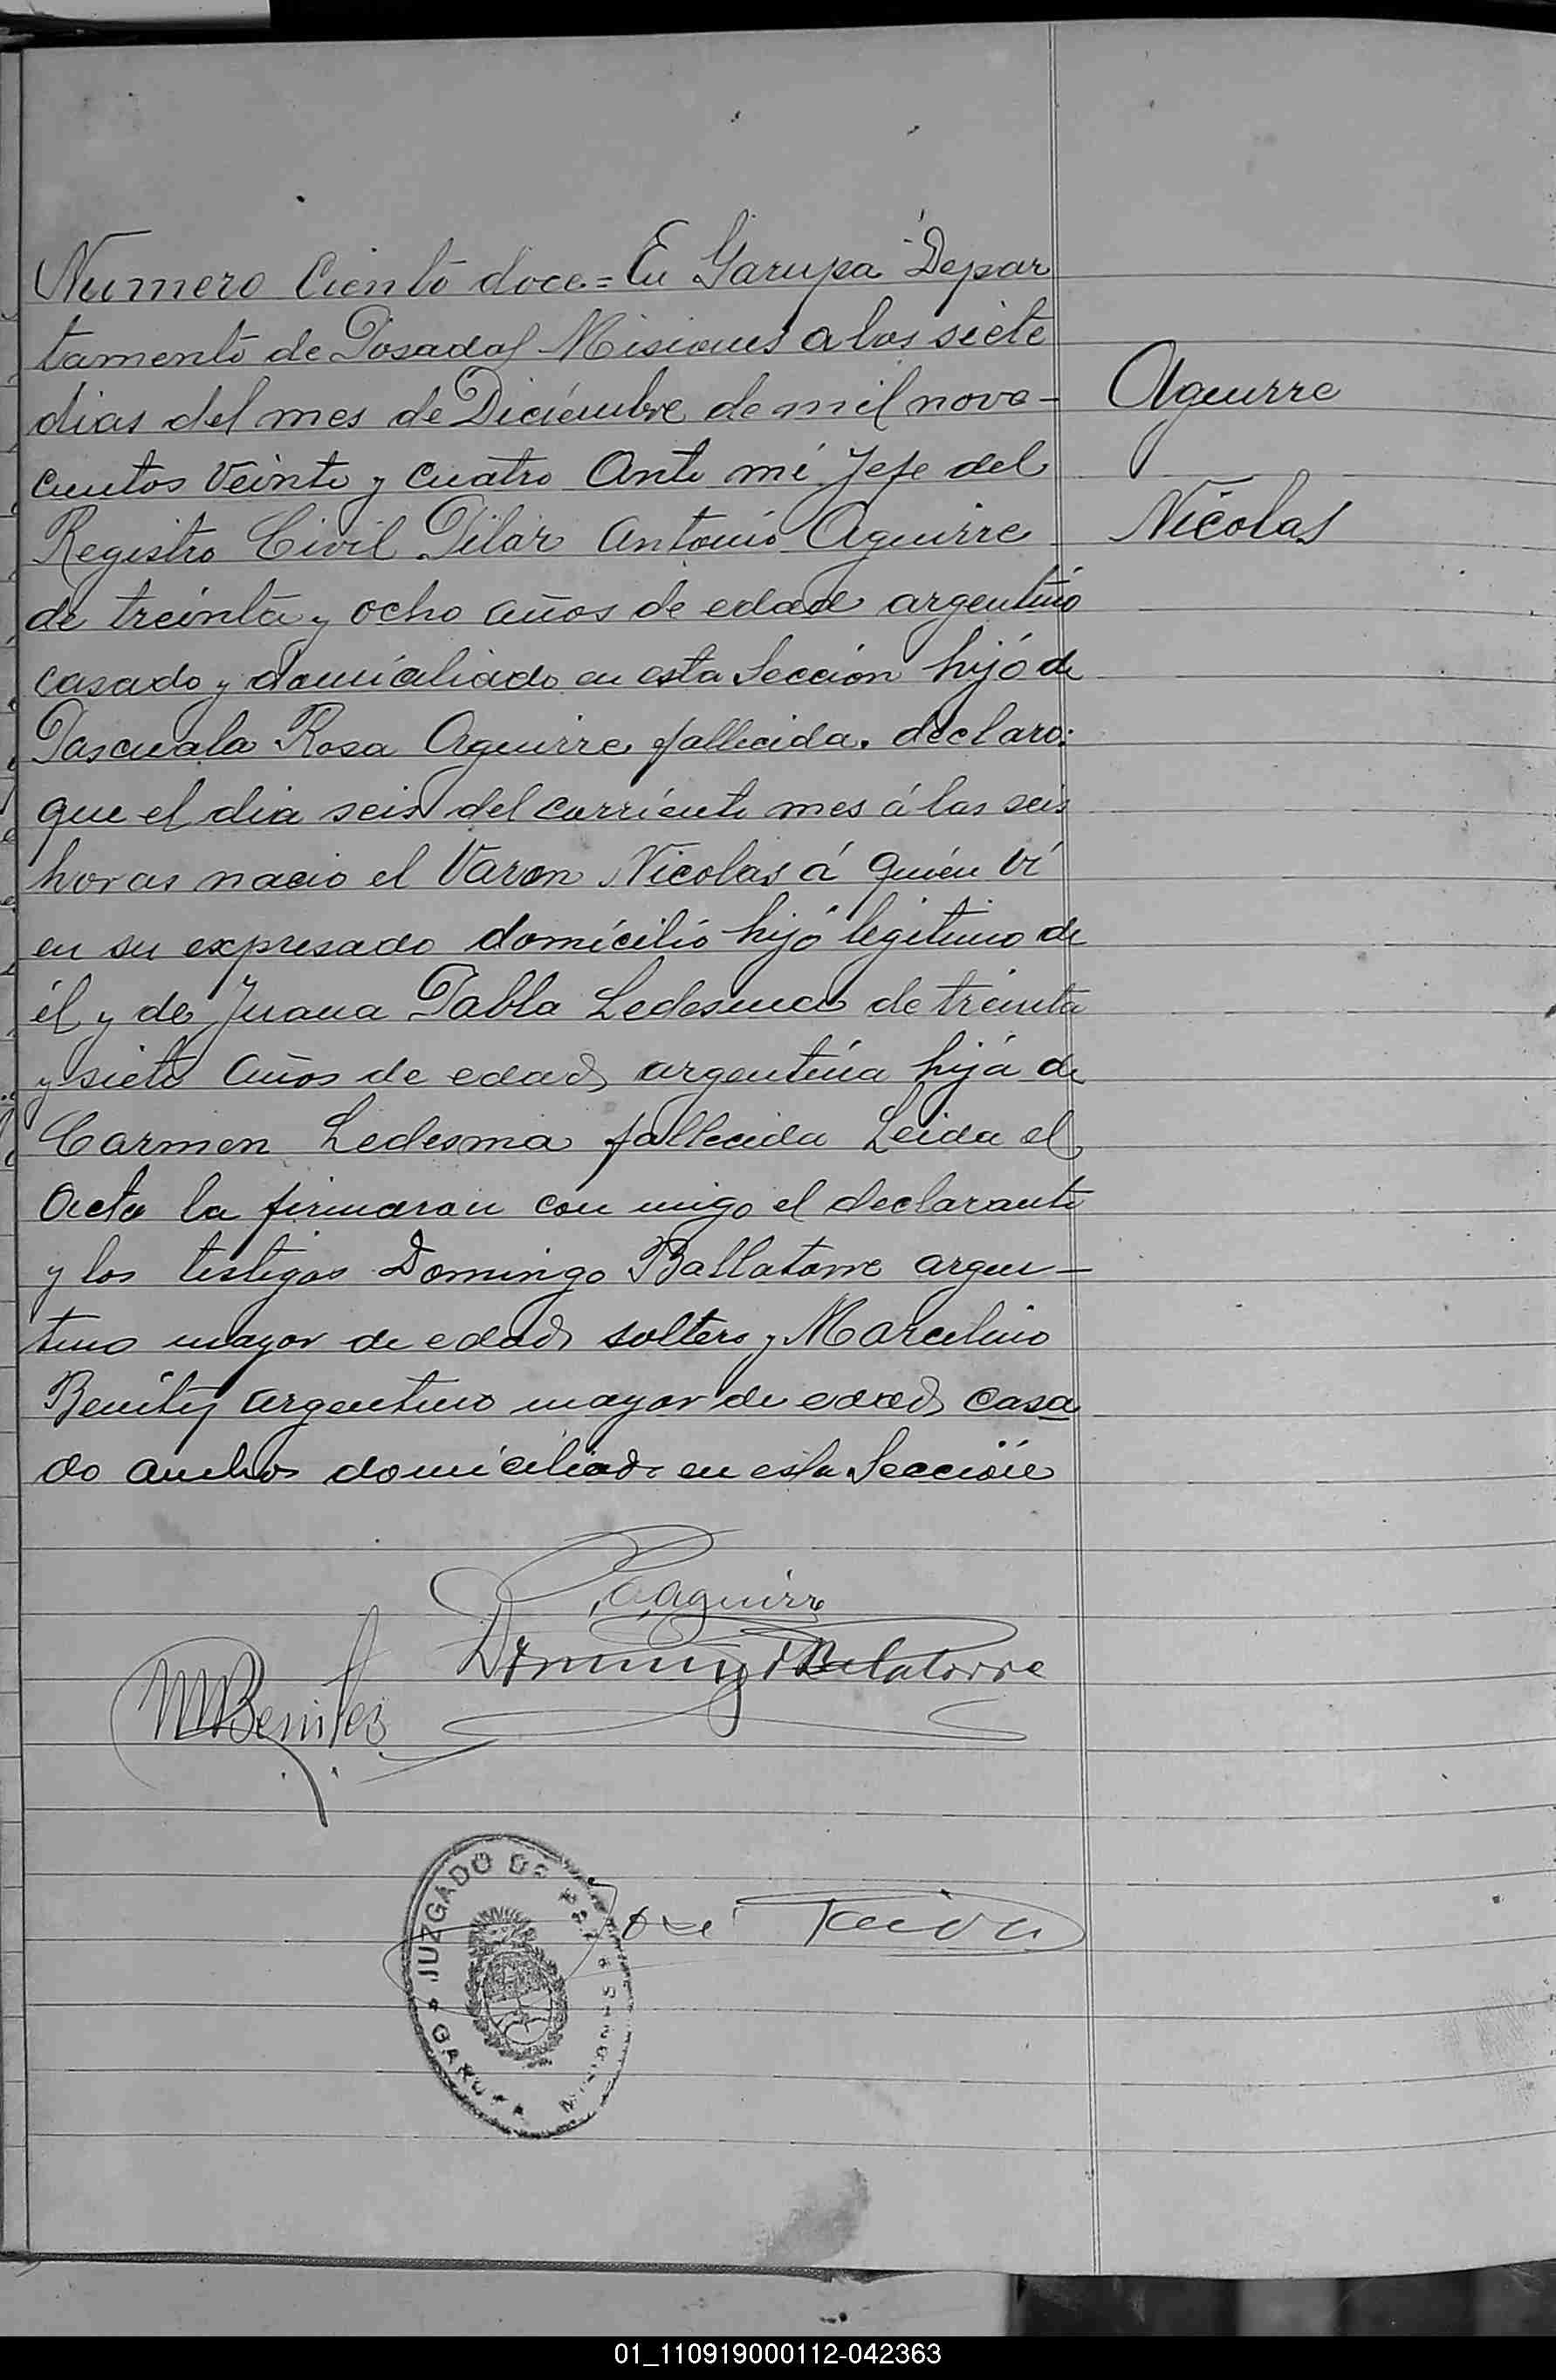 Numero Ciento doce = En Garupa Depar
tamento de Posadas Misiones a los siete
dias del mes de Diciembre de mil nove-
cientos veinte y cuatro Ante mi Jefe del
Registro Civil Pilar Antonio Aguirre
de treinta y ocho años de edad argentino
casado y domiciliado en esta Sección hijo de
Pascuala Rosa Aguirre fallecida. declaro:
que el dia seis del corriente mes á las seis
horas nacio el Varon Nicolas á quien ví
en su expresado domicilio hijo legitimo de
él y de Juana Pabla Ledesma de treinta
y siete años de edad argentina hija de
Carmen Ledesma fallecida Leida el
Acta la firmaron con migo el declarante
y los testigos Domingo Ballatorre argen-
tino mayor de edad soltero y Marcelino
Benitez argentino mayor de edad casa
do ambos domiciliado en esta Sección
Aguirre
Nicolas
PAAguirre
Domingo Balatorre
MBenites
Jose
JUZGADO DE PAZ
GARUPA MISIONES
01_110919000112-042363